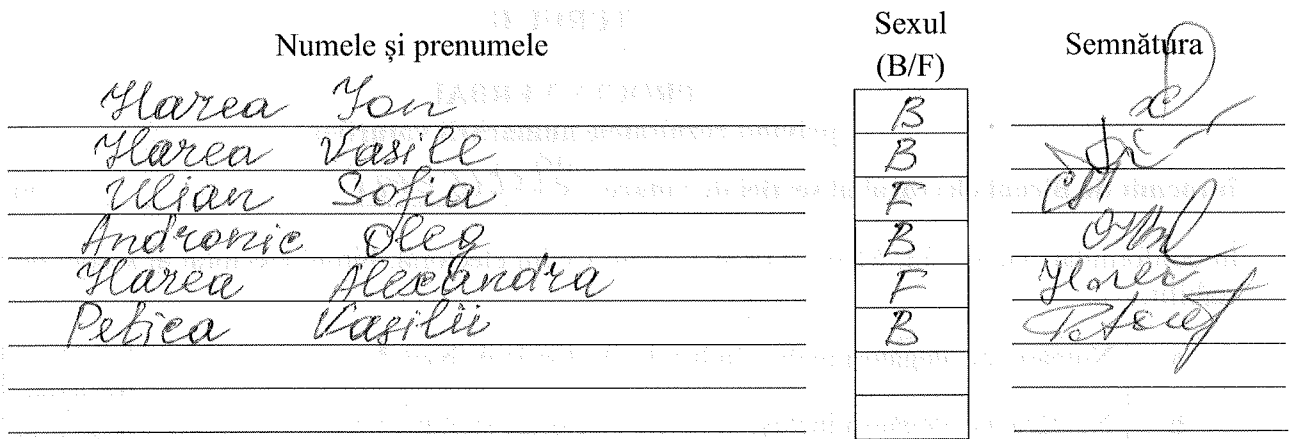 Numele și prenumele Sexul (B/F) Semnătura
Harea Ion B
Harea Vasile B
Ulian Sofia F
Andronic Oleg B
Harea Alexandra F
Petica Vasilii B